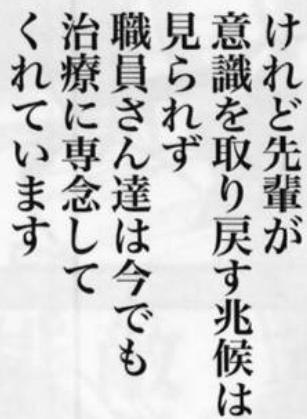 けれど先輩が
意識を取り戻す兆候は
見られず
職員さん達は今でも
治療に専念して
くれています